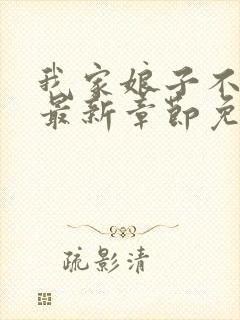 我家娘子不
最新章节免
疏影清